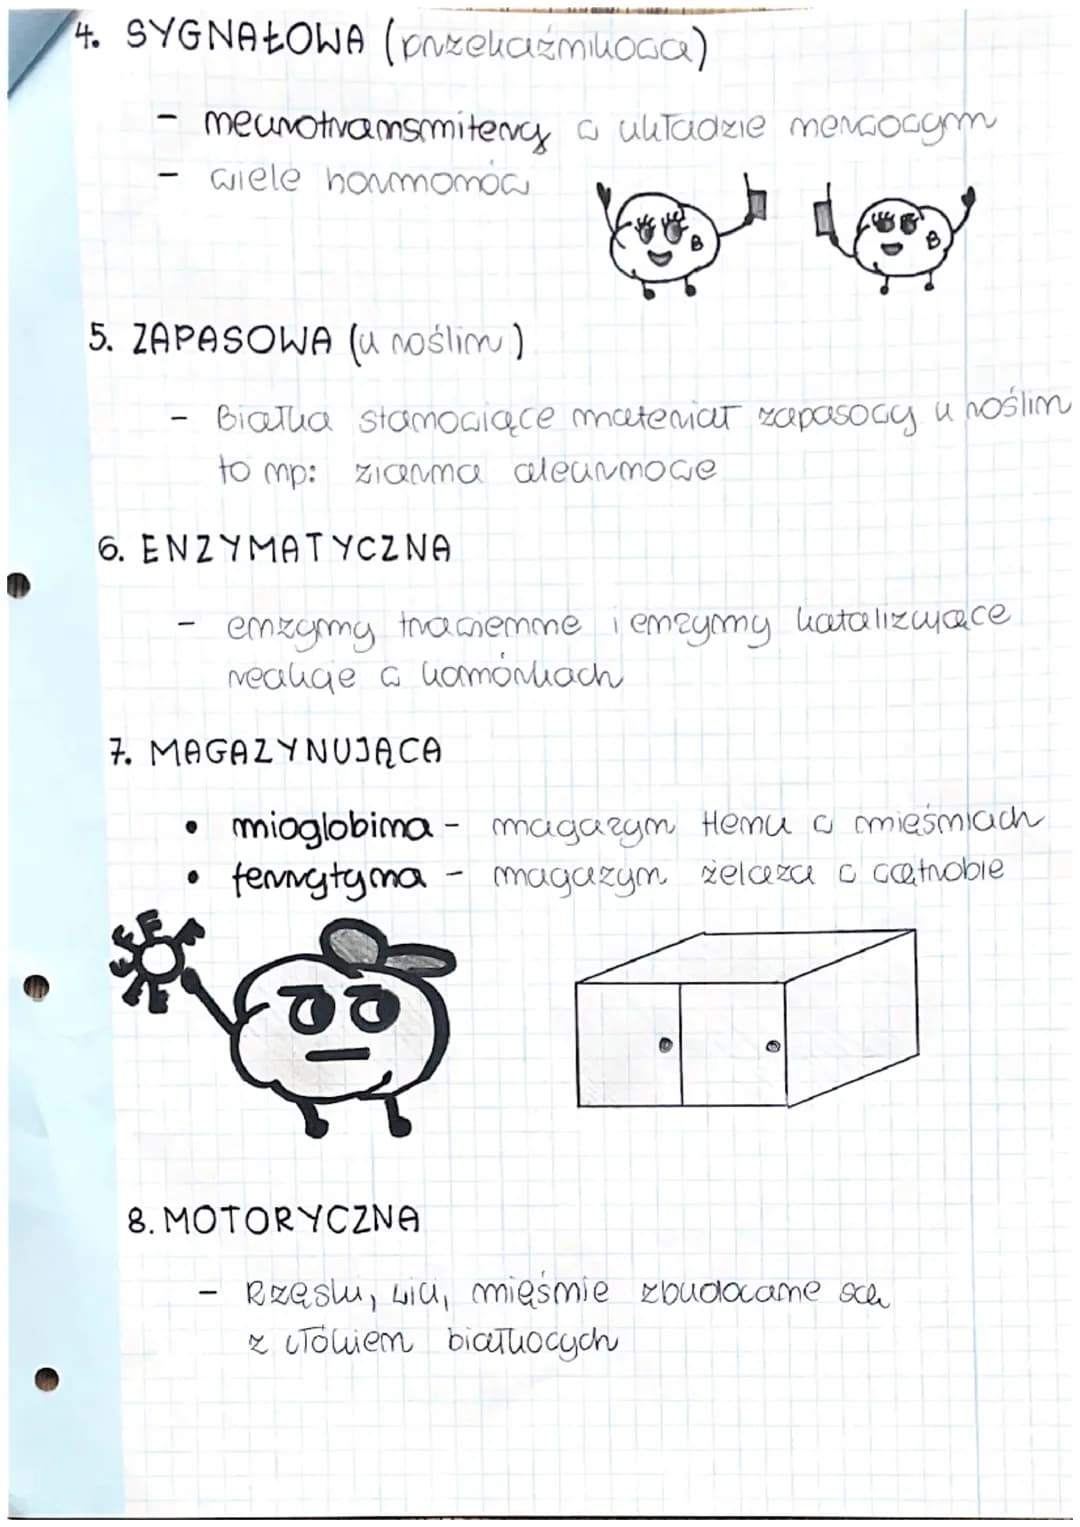 4. SYGNAŁOWA (przekaźnikowa)
- neurotransmitery w układzie nerwowym
- wiele hormonów
B
B
5. ZAPASOWA (u roślin)
- Białka stanowiące materiał zapasowy u roślin
to np: ziarna aleuronowe
6. ENZYMATYCZNA
- enzymy trawienne i enzymy katalizujące
reakcje w komórkach
7. MAGAZYNUJĄCA
• mioglobina - magazyn tlenu w mięśniach
• ferrytyna - magazyn żelaza w wątrobie
8. MOTORYCZNA
- Rzęski, wici, mięśnie zbudowane są
z włókien białkowych